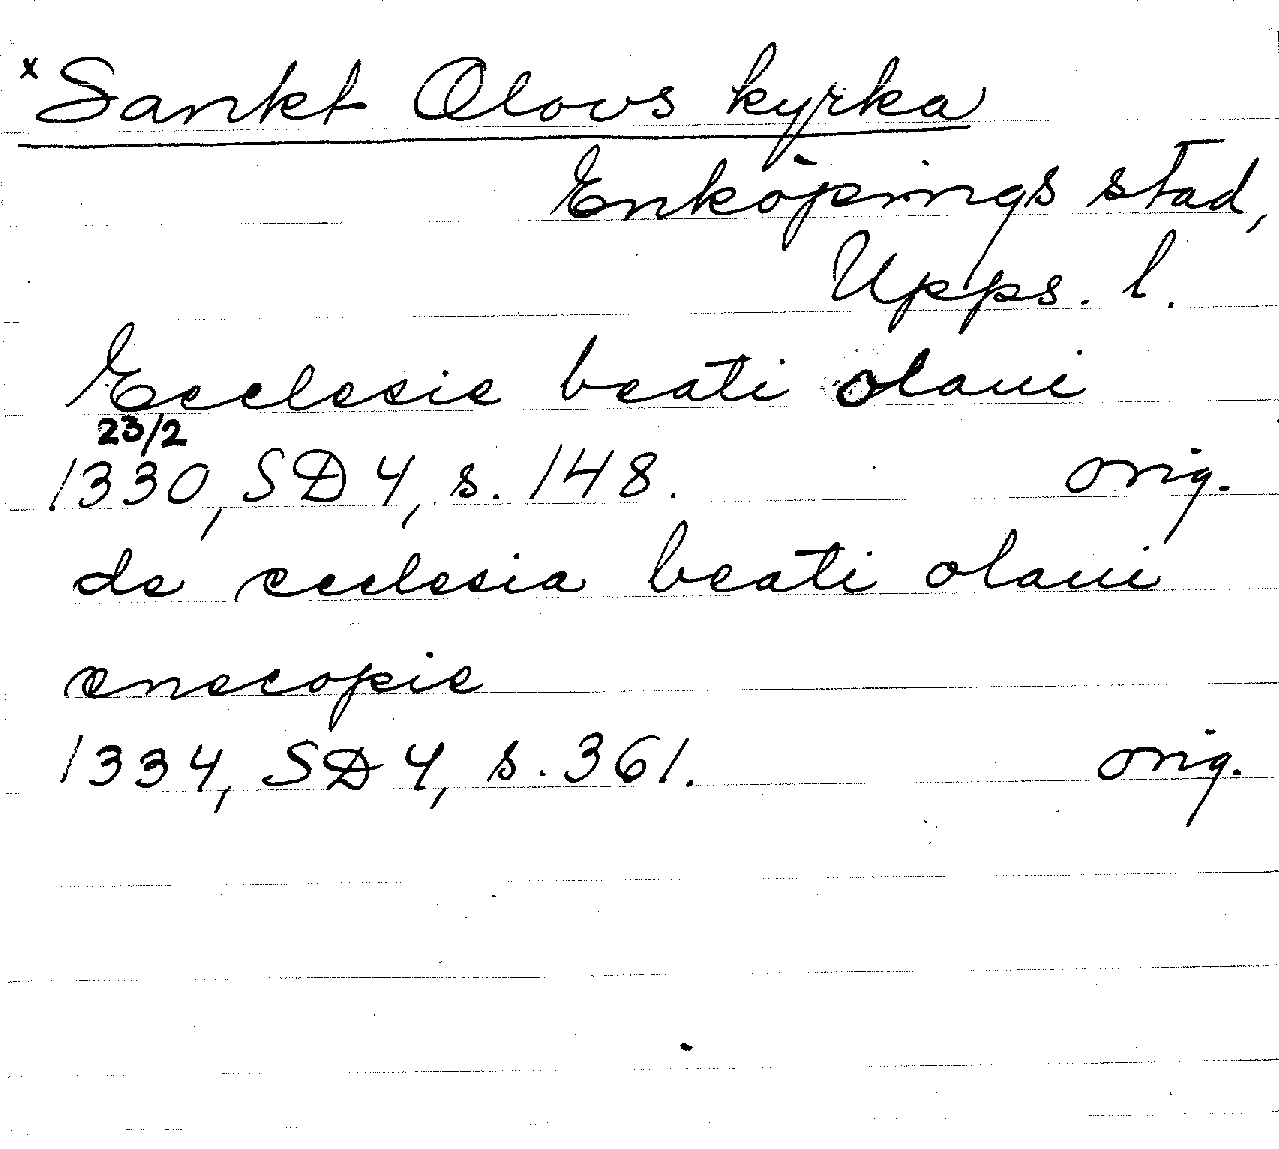 x Sankt Olovs kyrka
Enköpings stad,
Upps. l.
Ecclesie beati olaui
23/2
1330, SD 4, s. 148. orig.
de ecclesia beati olaui
enecopie
1334, SD 4, s. 361. orig.